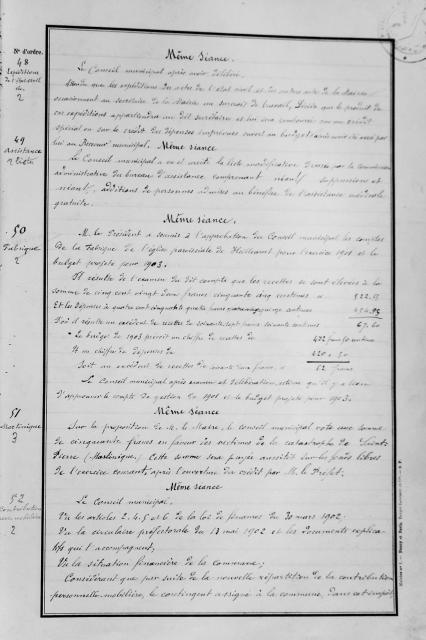 N° d'ordre.
48
Expéditions
de l'Etat civil
2
Même Séance.
Le Conseil municipal après avoir délibéré.
Attendu que les expéditions des actes de l'état civil et des autres actes de la Mairie
occasionnent au secrétaire de la Mairie un surcroît de travail, Décide que le produit de
ces expéditions appartiendra au dit secrétaire et lui sera remboursé sur un crédit
spécial ou sur le crédit des dépenses imprévues ouvert au budget
lui au Receveur municipal.
49
Assistance
2 liste
Même séance
Le Conseil municipal a vu et arrêté la liste modificative dressée par la commission
administrative du bureau d'assistance comprenant néant suppressions et
néant additions de personnes admises au bénéfice de l'assistance médicale
gratuite.
50
Fabrique
2
Même séance.
M. le Président a soumis à l'approbation du Conseil municipal les comptes
de la Fabrique de l'église paroissiale de pour l'exercice 1901 et le
budget projeté pour 1903.
Il résulte de l'examen du dit compte que les recettes se sont élevées à la
somme de cinq cent vingt deux francs cinquante cinq centimes ci 522.55
Et les dépenses à quatre cent cinquante quatre francs quatre vingt quinze centimes 454.95
D'où il résulte un excédent de recettes de soixante sept francs soixante centimes 67.60
Le budget de 1903 prévoit un chiffre de recettes de 482 francs 50 centimes
Et un chiffre de dépenses de 420 " 50
Soit un excédent de recettes de soixante deux francs, ci 62 francs
Le Conseil municipal après examen et délibération, estime qu'il y a lieu
d'approuver le compte de gestion de 1901 et le budget projeté pour 1903.
51
Martinique
3
Même séance
Sur la proposition de M. le Maire, le conseil municipal vote une somme
de cinquante francs en faveur des victimes de la catastrophe de Saint-
Pierre (Martinique). Cette somme sera payée aussitôt sur les fonds libres
de l'exercice courant, après l'ouverture du crédit par M. le Préfet.
52
Contribution
mobilière
2
Même séance
Le Conseil municipal,
Vu les articles 2, 4, 5 et 6 de la loi de finances du 30 mars 1902.
Vu la circulaire préfectorale du 13 mai 1902 et les documents explica-
tifs qui l'accompagnent;
Vu la situation financière de la commune;
Considérant que par suite de la nouvelle répartition de la contribution
personnelle-mobilière, le contingent assigné à la commune, dans cet impôt